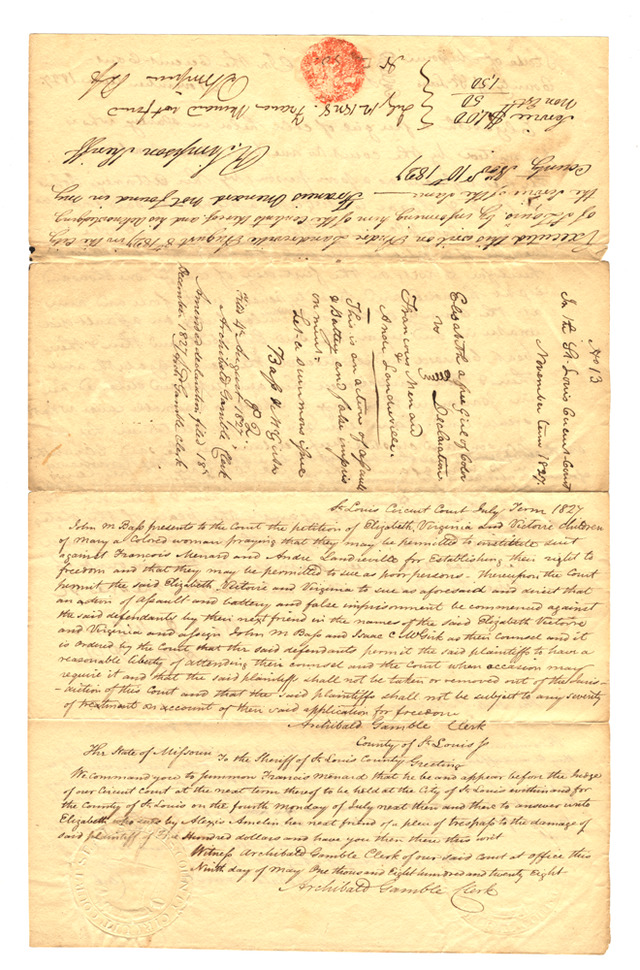 Executed this writ on Andre Landreville August 8th 1827 in the City
of St Louis by informing him of the Contents thereof and his acknowledging
the Service of the same — Francois Menard not found in my
County Nov 10th 1827
R Simpson Sheriff
Service $1.00
Non Est 50
1,50
July 12 1828. Francis Menard not found
R Simpson Shff
No 13
In the St Louis Circuit Court
November term 1827.
Elizabeth a free girl of Color
vs Declaration
Francois Menard
& Andre Landreville
This is an action of assault
& Battery and false impris
onment.
Let a summons issue
Bass & McGirk
P. Q.
Filed 4th August 1827,
Archibald Gamble, Clerk
Amended declaration filed 18th
December 1827 Archd Gamble Clerk
St Louis Circuit Court July Term 1827
John M Bass presents to the Court the petition of Elizabeth, Virginia and Victoire Children
of Mary a Colored woman praying that they may be permitted to institute suit
against Francois Menard and Andre Landreville for Establishing their right to
freedom and that they may be permitted to sue as poor persons – thereupon the Court
permit the said Elizabeth, Victoire and Virginia to sue as aforesaid and direct that
an action of assault and battery and false imprisonment be commenced against
the said defendants by their next friend in the names of the said Elizabeth Victoire
and Virginia and assign John M Bass and Isaac C McGirk as their Counsel and it
is ordered by the Court that the said defendants permit the said plaintiffs to have a
reasonable liberty of attending their counsel and the Court when occasion may
require it and that the said plaintiffs shall not be taken or removed out of the Juris-
-diction of this Court and that the said plaintiffs shall not be subject to any severity
of treatment on account of their said application for freedom
Archibald Gamble Clerk
County of St Louis Js
The State of Missouri To the Sheriff of St Louis County Greeting
We command you to summon Francis Menard that he be and appear before the Judge
of our Circuit Court at the next term thereof to be held at the City of St Louis within and for
the County of St Louis on the fourth Monday of July next then and there to answer unto
Elizabeth who sues by Alexis Amelin her next friend of a plea of trespass to the damage of
said plaintiff of Hundred dollars and have you then there this writ
Witness Archibald Gamble Clerk of our said Court at office this
Ninth day of May One thousand Eight hundred and twenty Eight
Archibald Gamble Clerk